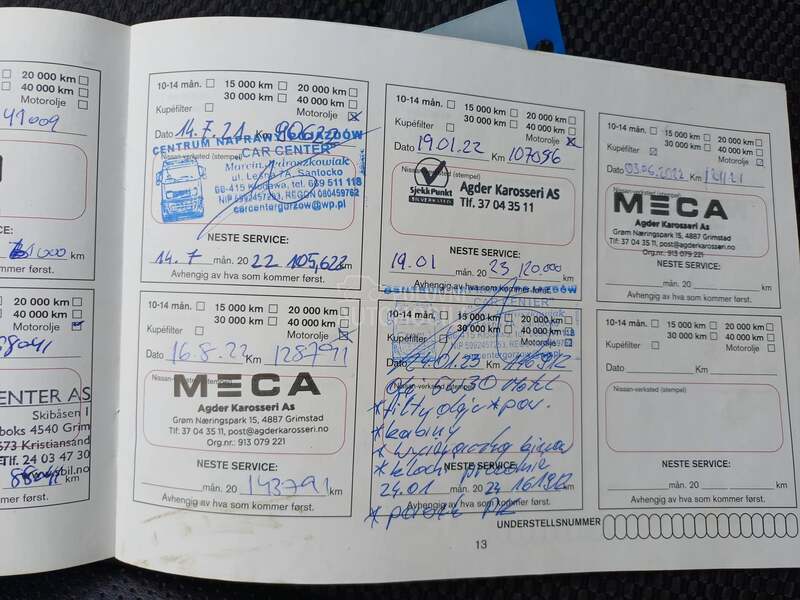 20 000 km
40 000 km
Motorolje
41009
000 km
km først.
20 000 km
40 000 km
Motorolje
88041
ENTER AS
Skibåsen 1
boks 4540 Grim
4673 Kristiansand
Tlf. 24 03 47 30
bil.no
km
km først.
10-14 mån. 15 000 km 20 000 km
30 000 km 40 000 km
Kupéfilter Motorolje
Dato 14.7.21 Km 90622
CENTRUM NAPRAW POJAZDÓW
Nissan-verksted (stempel)
"CAR CENTER"
ul. Leśna 7A, Santocko
66-415 Kłodawa, tel. 669 511 118
carcentergorzow@wp.pl
NESTE SERVICE:
14.7 mån. 20 22 105,622 km
Avhengig av hva som kommer først.
10-14 mån. 15 000 km 20 000 km
30 000 km 40 000 km
Kupéfilter Motorolje
Dato 19.01.22 Km 107096
Nissan-verksted (stempel)
SjekkPunkt
BILVERKSTED
Agder Karosseri AS
Tlf. 37 04 35 11
NESTE SERVICE:
19.01 mån. 20 23 120.000 km
Avhengig av hva som kommer først.
10-14 mån. 15 000 km 20 000 km
30 000 km 40 000 km
Kupéfilter Motorolje
Dato 03.06.2022 Km
Nissan-verksted (stempel)
MECA
Agder Karosseri As
Grøm Næringspark 15, 4887 Grimstad
Tlf: 37 04 35 11, post@agderkarosseri.no
Org.nr.: 913 079 221
NESTE SERVICE:
mån. 20 km
Avhengig av hva som kommer først.
10-14 mån. 15 000 km 20 000 km
30 000 km 40 000 km
Kupéfilter Motorolje
Dato 16.8.22 Km 128791
Nissan-verksted (stempel)
MECA
Agder Karosseri As
Grøm Næringspark 15, 4887 Grimstad
Tlf: 37 04 35 11, post@agderkarosseri.no
Org.nr.: 913 079 221
NESTE SERVICE:
mån. 20 143791 km
Avhengig av hva som kommer først.
"CAR CENTER"
10-14 mån. 15 000 km 20 000 km
30 000 km 40 000 km
Kupéfilter Motorolje
Dato 24.01.23 146912
5W30
* filtry olej * pow.
* kabiny
* klocki przednie
NESTE SERVICE:
24.01 mån. 20 24 161912 km
Avhengig av hva som kommer først.
10-14 mån. 15 000 km 20 000 km
30 000 km 40 000 km
Kupéfilter Motorolje
Dato Km
Nissan-verksted (stempel)
NESTE SERVICE:
mån. 20 km
Avhengig av hva som kommer først.
UNDERSTELLSNUMMER
13